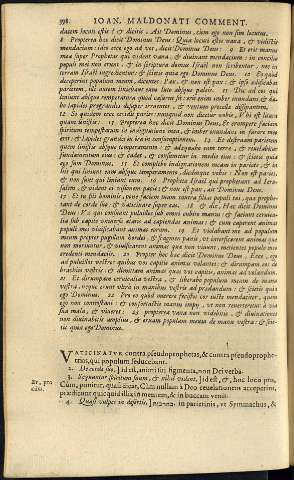 398 IOAN. MALDONATI COMMENT.
datam locuti estis: & dicitis, Ait Dominus, cum ego non sim locutus.
8 Propterea hæc dicit Dominus Deus: Quia locuti estis vana, & vidistis
mendacium: ideo ecce ego ad vos, dicit Dominus Deus: 9 Et erit manus
mea super Prophetas qui vident vana, & diuinant mendacium: in concilio
populi mei non erunt, & in scriptura domus Israël non scribentur, nec in
terram Israël ingredientur: & scietis quia ego Dominus Deus. 10 Eo quòd
deceperint populum meum, dicentes: Pax, & non est pax: & ipse ædificabat
parietem, illi autem liniebant eum luto absque paleis. 11 Dic ad eos qui
liniunt absque temperatura quòd casurus sit: erit enim imber inundans, & da-
bo lapides prægrandes desuper irruentes, & ventum procellæ dissipantem.
12 Si quidem ecce cecidit paries: nunquid non dicetur vobis, Vbi est litura
quam linistis? 13 Propterea hæc dicit Dominus Deus, Et erumpere faciam
spiritum tempestatum in indignatione mea, & imber inundans in furore meo
erit, & lapides grandes in ira in consumptionem. 14 Et destruam parietem
quem linistis absque temperamento: & adæquabo eum terræ, & reuelabitur
fundamentum eius: & cadet, & consumetur in medio eius: & scietis quia
ego sum Dominus. 15 Et complebo indignationem meam in pariete, & in
his qui liniunt eum absque temperamento, dicámque vobis: Non est paries,
& non sunt qui liniunt eum. 16 Prophetæ Israël qui prophetant ad Ieru-
salem, & vident ei visionem pacis: & non est pax, ait Dominus Deus.
17 Et tu fili hominis, pone faciem tuam contra filias populi tui, quæ prophe-
tant de corde suo: & vaticinare super eas, 18 & dic, Hæc dicit Dominus
Deus: Væ quæ consuunt puluillos sub omni cubito manus: & faciunt ceruica-
lia sub capite vniuersæ ætatis ad capiendas animas: & cum caperent animas
populi mei viuificabant animas eorum. 19 Et violabant me ad populum
meum propter pugillum hordei, & fragmen panis, vt interficerent animas quæ
non moriuntur, & viuificarent animas quæ non viuunt, mentientes populo meo
credenti mendaciis. 20 Propter hoc hæc dicit Dominus Deus: Ecce, ego
ad puluillos vestros: quibus vos capitis animas volantes: & dirumpam eos de
brachiis vestris, & dimittam animas quas vos capitis, animas ad volandum.
21 Et dirumpam ceruicalia vestra, & liberabo populum meum de manu
vestra, neque erunt vltra in manibus vestris ad prædandum: & scietis quia
ego Dominus. 22 Pro eo quòd mœrere fecistis cor iusti mendaciter, quem
ego non contristaui: & confortastis manus impij, vt non reuerteretur à via
sua mala, & viueret: 23 propterea vana non videbitis, & diuinationes
non diuinabitis amplius, & eruam populum meum de manu vestra: & scie-
tis quia ego Dominus.
VATICINATVR contra pseudoprophetas, & contra pseudoprophe-
tissas, qui populum seducebant.
2. De corde suo, Id est, animi sui figmenta, non Dei verba.
3. Sequuntur spiritum suum, & nihil vident, Id est, &, hoc loco pro,
Cùm, ponitur, quasi dicat, Cùm nullam à Deo reuelationem acceperint,
prædicent quicquid illis in mentem, & in buccam venit.
Et, pro
cùm.
4. Quasi vulpes in desertis, In parietinis, vt Symmachus, &